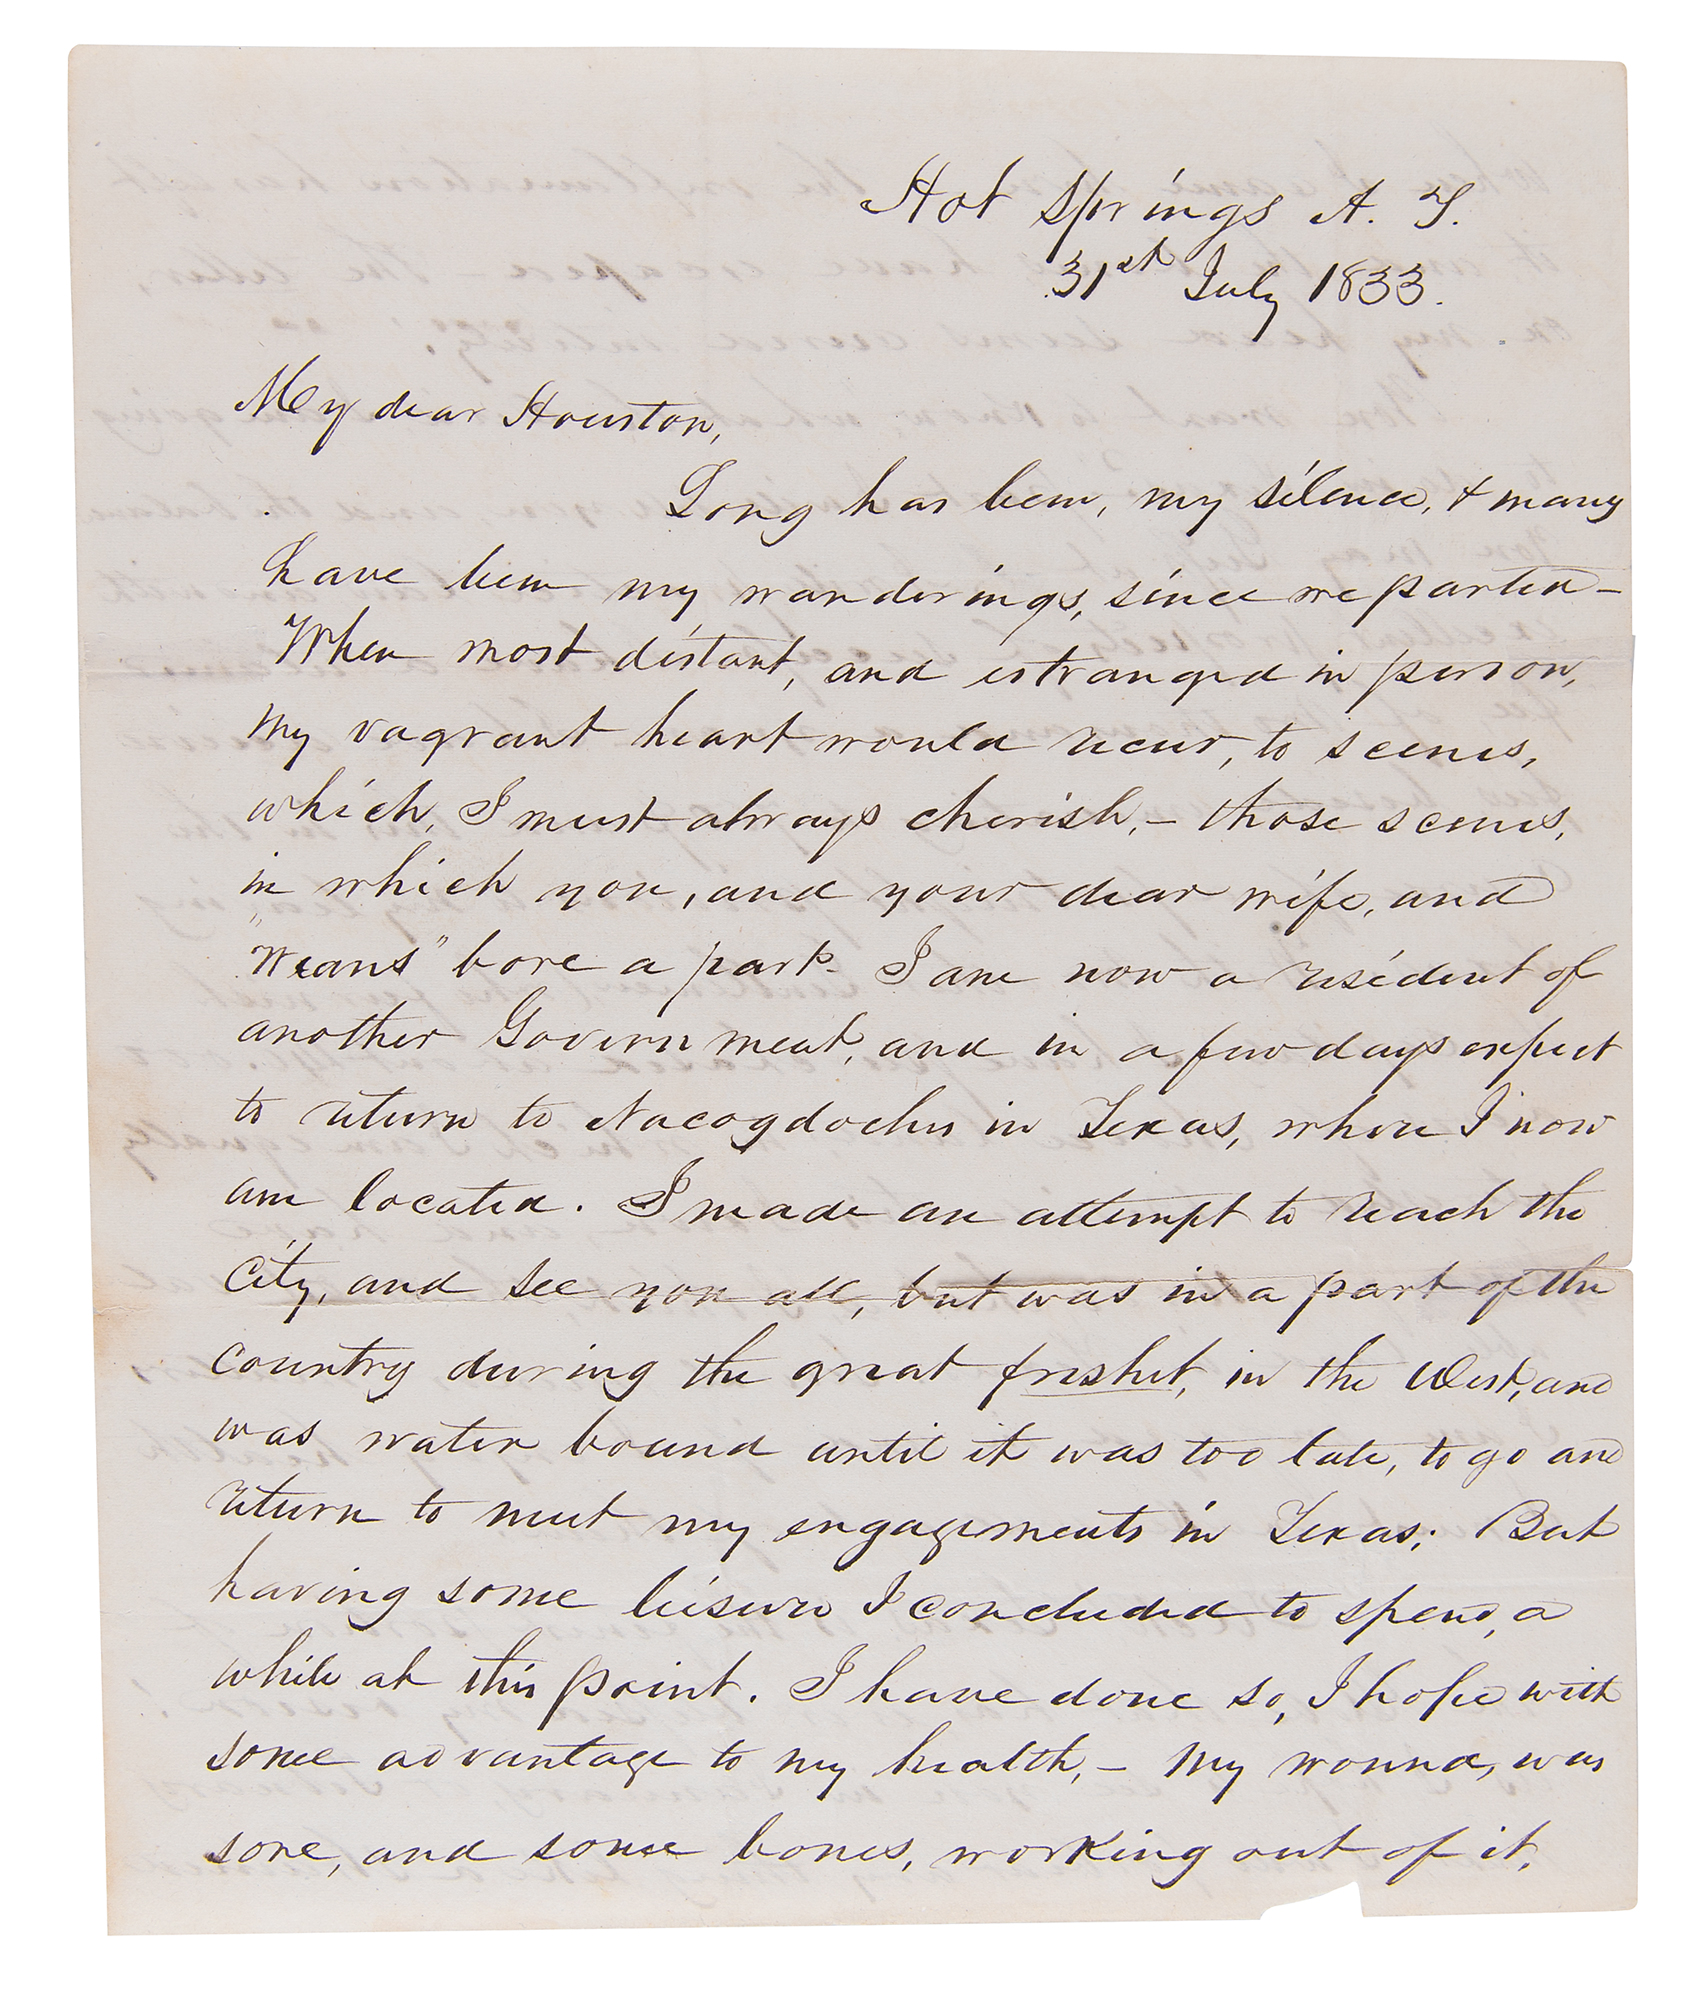 Hot Springs A. T.
31st July 1833.
My dear Houston,
Long has been, my silence, & many
have been my wanderings, since we parted –
When most distant, and estranged in person,
my vagrant heart would recur, to scenes,
which, I must always cherish, – those scenes,
in which you, and your dear wife, and
"weans" bore a part. I am now a resident of
another Government, and in a few days expect
to return to Nacogdoches in Texas, where I now
am located. I made an attempt to reach the
City, and see you all, but was in a part of the
country during the great freshet, in the West, and
was water bound until it was too late, to go and
return to meet my engagements in Texas; But
having some leisure I concluded to spend, a
while at this point. I have done so, I hope with
some advantage to my health, – my wound, was
sore, and some bones, working out of it,